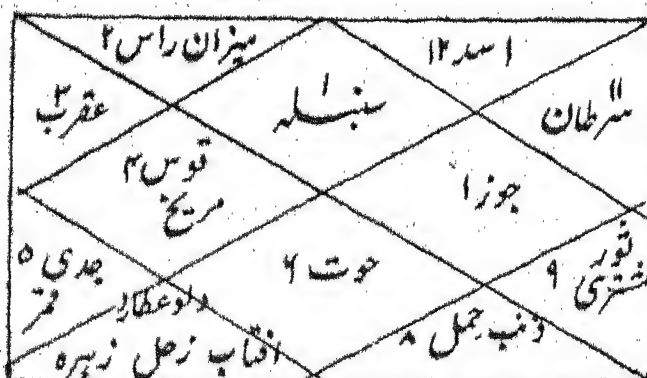 میزان راس ۲
اسد ۱۲
سنبلہ ۱
عقرب ۳
سرطان ۱۱
قوس ۴
مریخ
جوزا
جدی ۵
قمر
حوت ۶
ثور ۹
مشتری
دلو عطارد
افتاب زحل زہرہ
ذنب حمل ۸